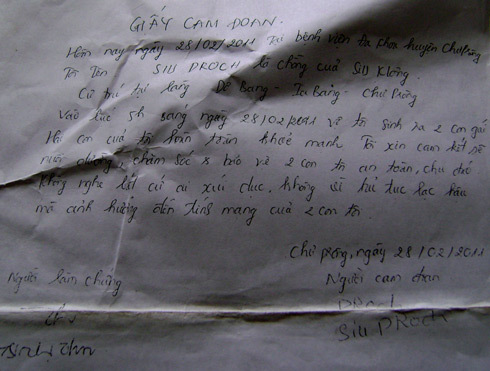 GIẤY CAM ĐOAN.
Hôm nay ngày 28/02/2011 Tại bệnh viện đa khoa huyện Chư Prông
Tôi Tên SIU PROCH là chồng cuả SIU Klông.
Cư trú tại làng Dê Bang - Ia Bang - Chư Prông
Vào lúc 5h sáng ngày 28/02/2011 vợ tôi sinh ra 2 con gái
Hai con cuả tôi hoàn toàn khoẻ mạnh Tôi xin cam kết sẽ
nuôi dưỡng, chăm sóc & bảo vệ 2 con tôi an toàn, chu đáo
không nghe lời cứ ai xúi dục, không vì hủ tục lạc hậu
mà ảnh hưởng đến tính mạng cuả 2 con tôi.
Chư prông, ngày 28/02/2011
Người làm chứng Người cam đoan
PRoch
Siu PROCH